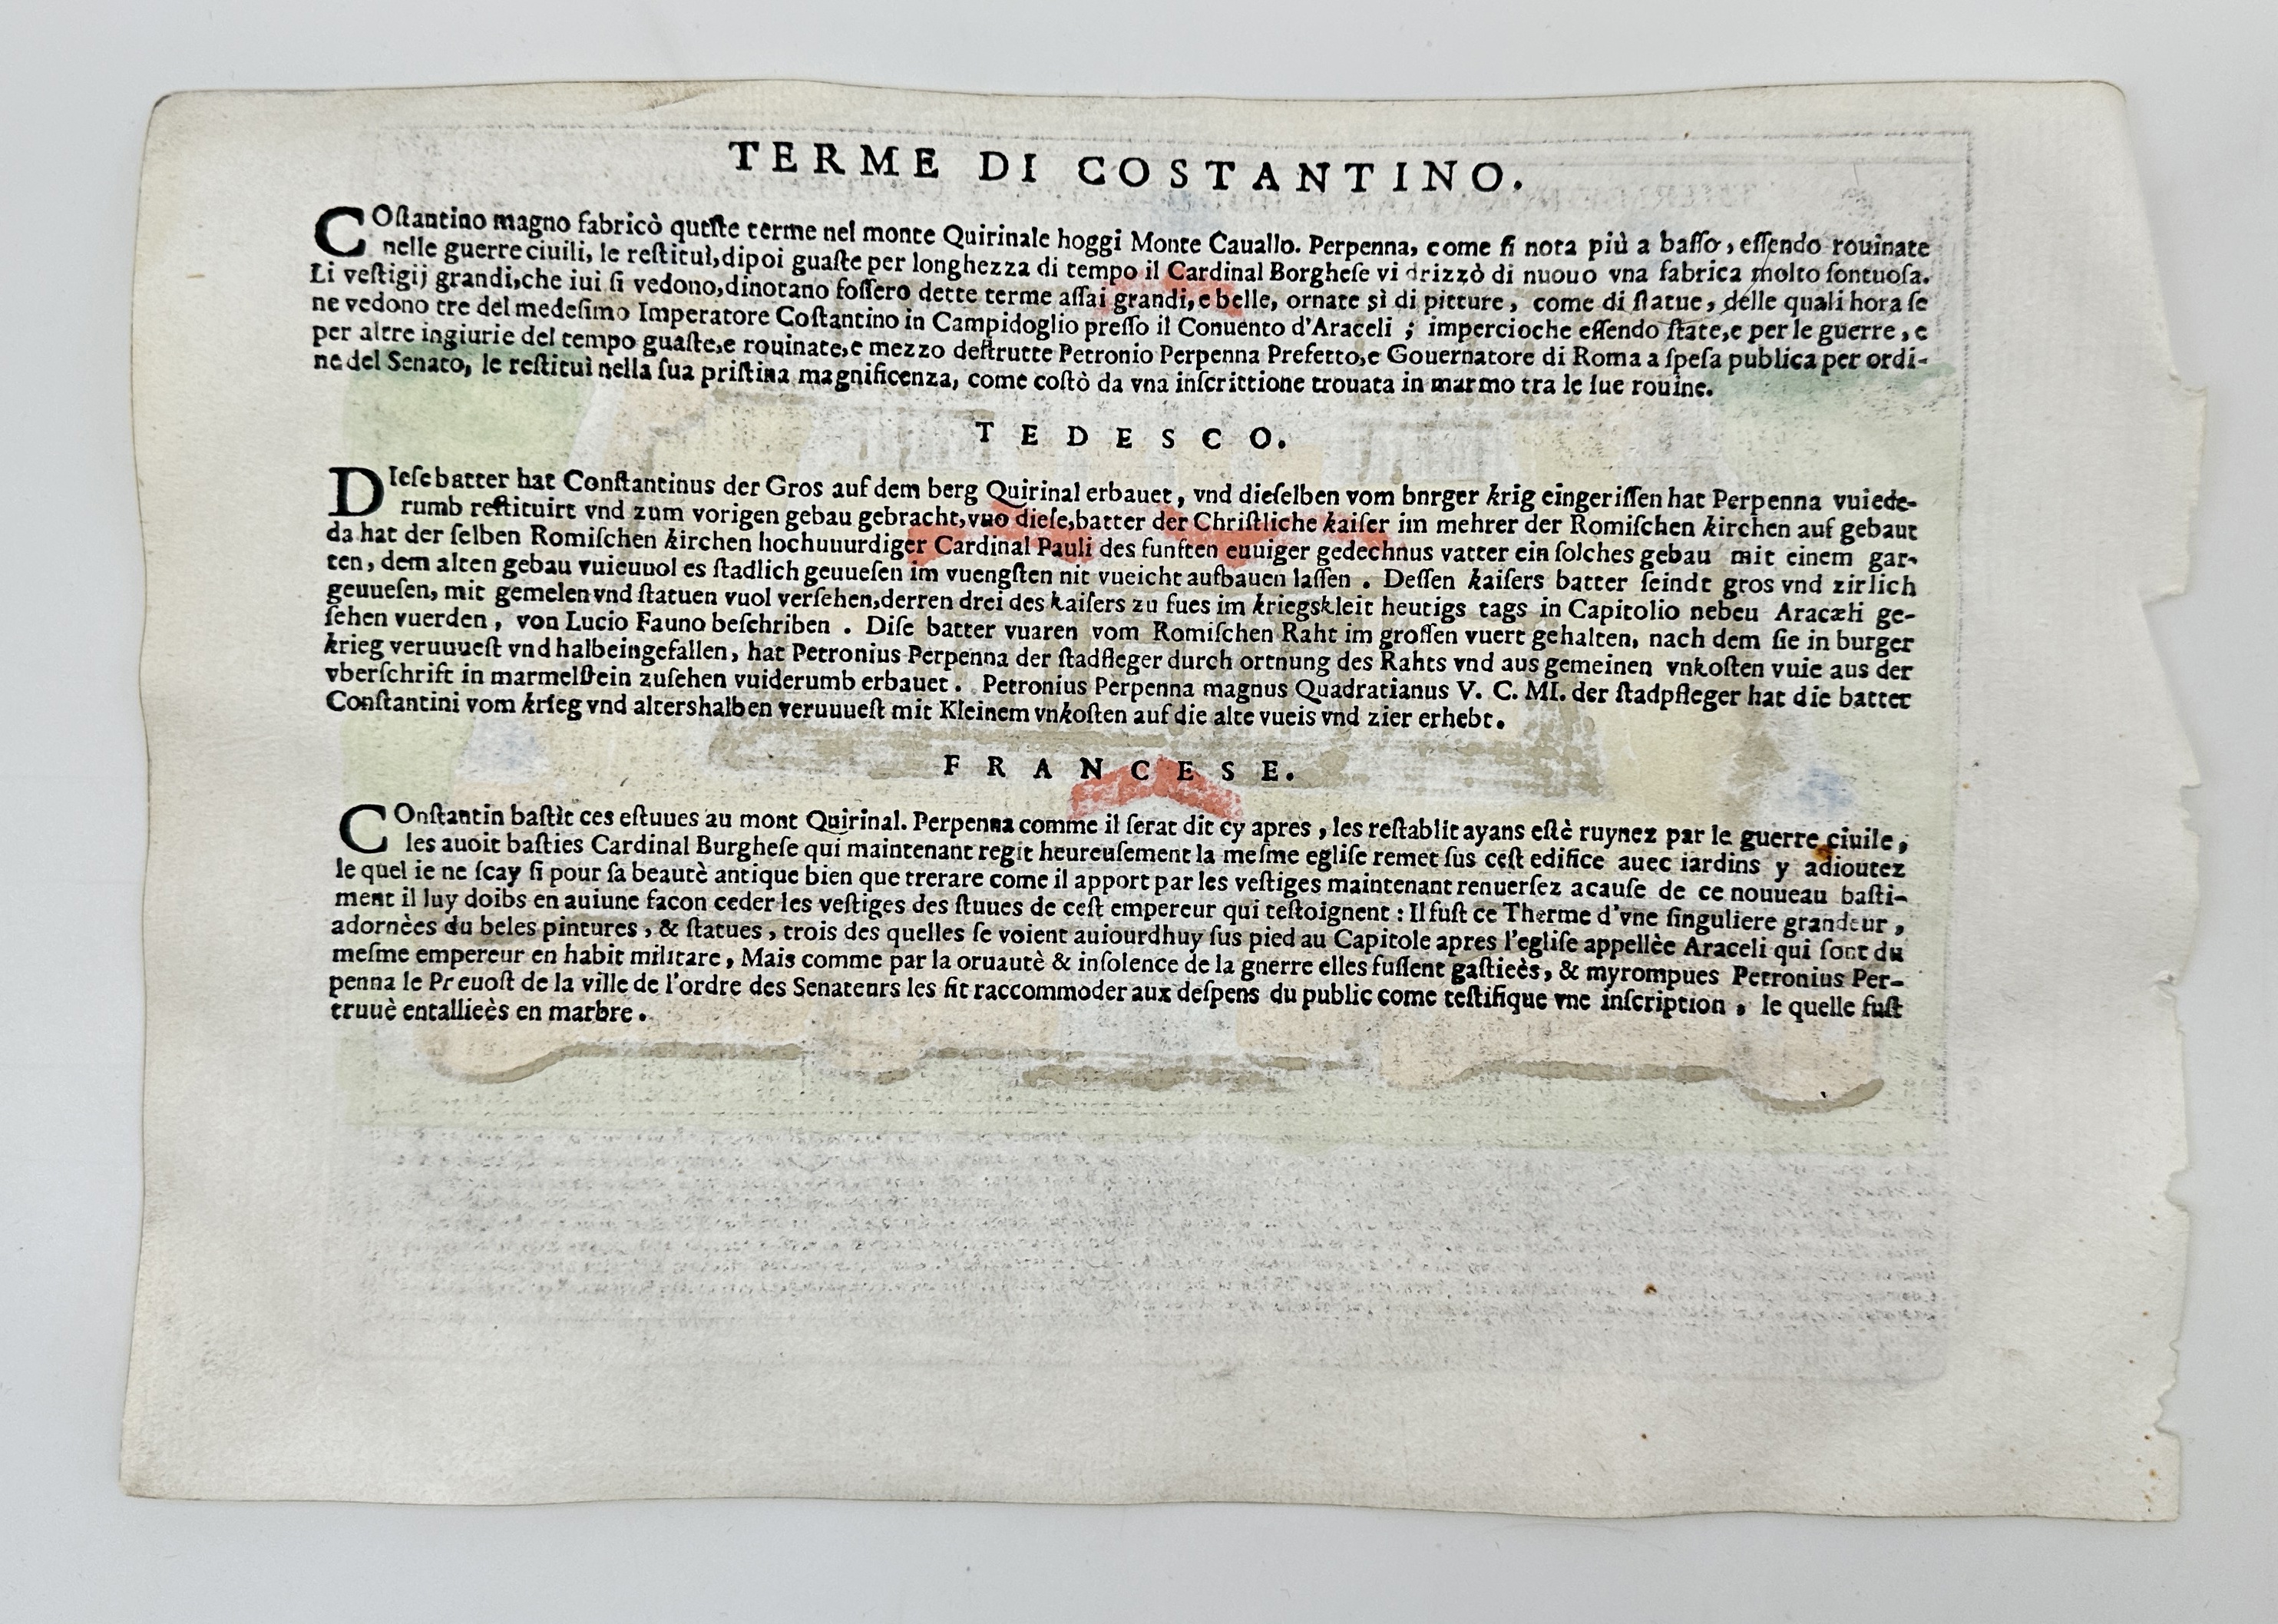 TERME DI COSTANTINO.
COſtantino magno fabricò queſte terme nel monte Quirinale hoggi Monte Cauallo. Perpenna, come ſi nota più a baſſo, eſſendo rouinate
nelle guerre ciuili, le reſtituì, dipoi guaſte per longhezza di tempo il Cardinal Borgheſe vi drizzò di nuouo vna fabrica molto ſontuoſa.
Li veſtigij grandi, che iui ſi vedono, dinotano foſſero dette terme aſſai grandi, e belle, ornate sì di pitture, come di ſtatue, delle quali hora ſe
ne vedono tre del medeſimo Imperatore Coſtantino in Campidoglio preſſo il Conuento d'Araceli ; impercioche eſſendo ſtate, e per le guerre, e
per altre ingiurie del tempo guaſte, e rouinate, e mezzo deſtrutte Petronio Perpenna Prefetto, e Gouernatore di Roma a ſpeſa publica per ordi-
ne del Senato, le reſtituì nella ſua priſtina magnificenza, come coſtò da vna inſcrittione trouata in marmo tra le ſue rouine.
TEDESCO.
DIeſe batter hat Conſtantinus der Gros auf dem berg Quirinal erbauet, vnd dieſelben vom bnrger krig eingeriſſen hat Perpenna vuiede-
rumb reſtituirt vnd zum vorigen gebau gebracht, vuo dieſe, batter der Chriſtliche kaiſer im mehrer der Romiſchen kirchen auf gebaut
da hat der ſelben Romiſchen kirchen hochuuurdiger Cardinal Pauli des funften euuiger gedechnus vatter ein ſolches gebau mit einem gar-
ten, dem alten gebau vuieuuol es ſtadlich geuueſen im vuengſten nit vueicht aufbauen laſſen . Deſſen kaiſers batter ſeindt gros vnd zirlich
geuueſen, mit gemelen vnd ſtatuen vuol verſehen, derren drei des kaiſers zu fues im kriegskleit heutigs tags in Capitolio nebeu Aracæli ge-
ſehen vuerden , von Lucio Fauno beſchriben . Diſe batter vuaren vom Romiſchen Raht im groſſen vuert gehalten, nach dem ſie in burger
krieg veruuueſt vnd halbeingefallen, hat Petronius Perpenna der ſtadfleger durch ortnung des Rahts vnd aus gemeinen vnkoſten vuie aus der
vberſchrift in marmelſtein zuſehen vuiderumb erbauet . Petronius Perpenna magnus Quadratianus V. C. MI. der ſtadpfleger hat die batter
Conſtantini vom krieg vnd altershalben veruuueſt mit Kleinem vnkoſten auf die alte vueis vnd zier erhebt.
FRANCESE.
COnſtantin baſtit ces eſtuues au mont Quirinal. Perpenna comme il ſerat dit cy apres , les reſtablit ayans eſtè ruynez par le guerre ciuile ,
les auoit baſties Cardinal Burgheſe qui maintenant regit heureuſement la meſme egliſe remet ſus ceſt edifice auec iardins y adioutez
le quel ie ne ſcay ſi pour ſa beautè antique bien que trerare come il apport par les veſtiges maintenant renuerſez acauſe de ce nouueau baſti-
ment il luy doibs en auiune facon ceder les veſtiges des ſtuues de ceſt empereur qui teſtoignent : Il fuſt ce Therme d'vne ſinguliere grandeur ,
adornèes du beles pintures , & ſtatues , trois des quelles ſe voient auiourdhuy ſus pied au Capitole apres l'egliſe appellèe Araceli qui ſont du
meſme empereur en habit militare , Mais comme par la oruautè & inſolence de la gnerre elles fuſſent gaſtieès, & myrompues Petronius Per-
penna le Preuoſt de la ville de l'ordre des Senateurs les fit raccommoder aux deſpens du public come teſtifique vne inſcription , le quelle fuſt
truuè entallieès en marbre .